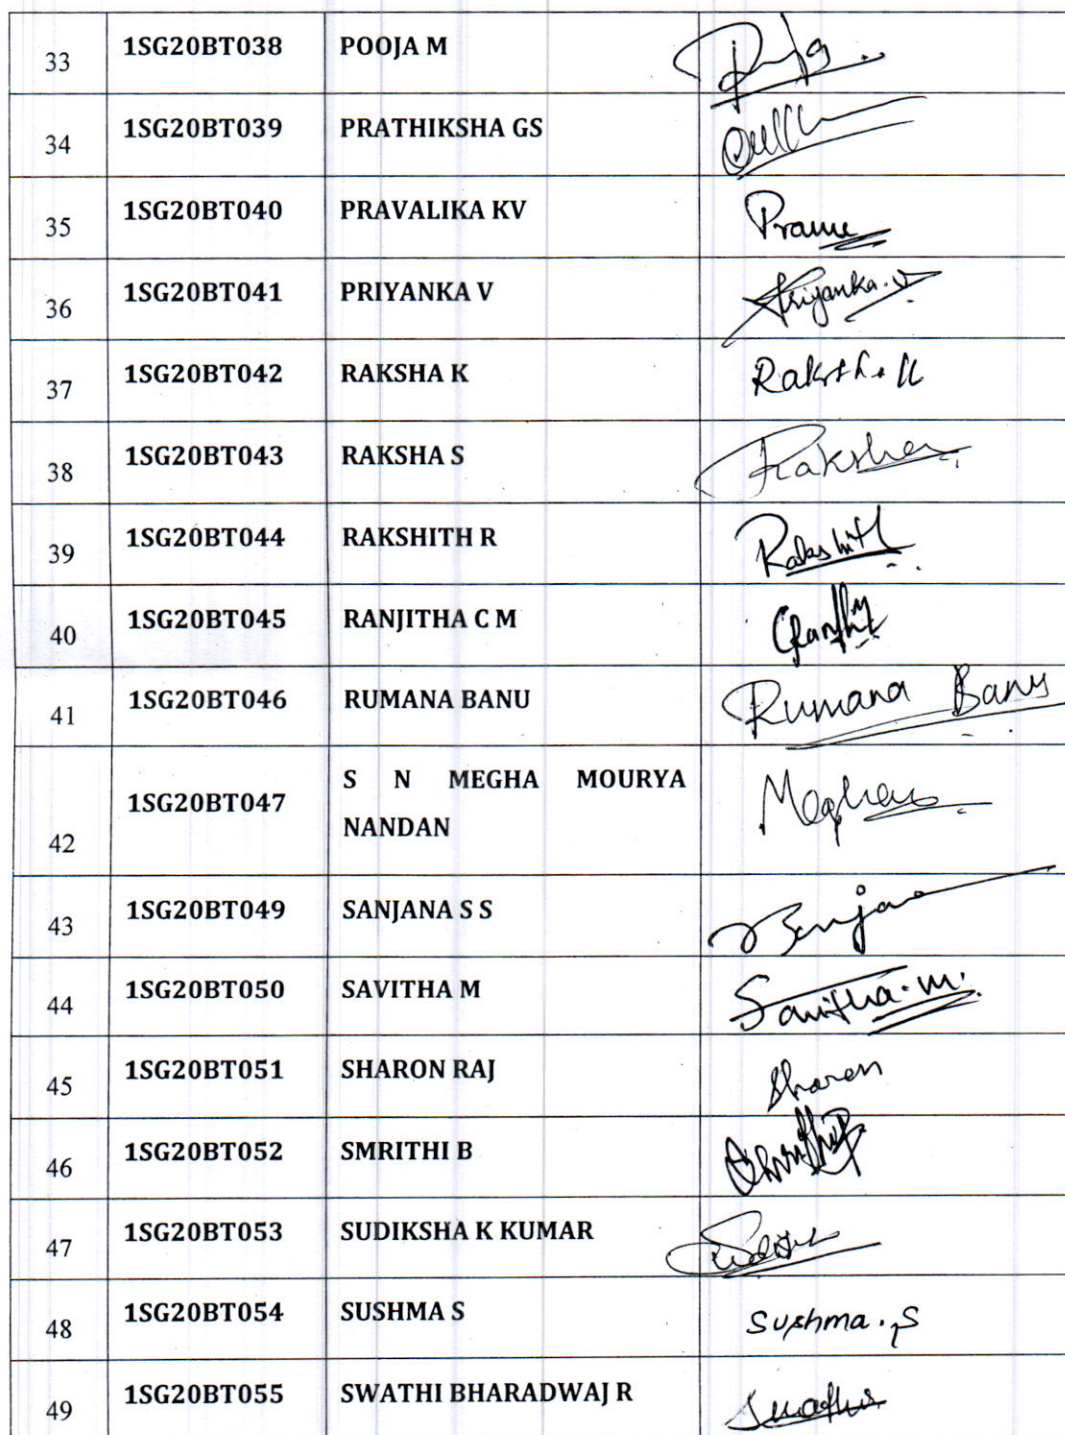 33 1SG20BT038 POOJA M
34 1SG20BT039 PRATHIKSHA GS
35 1SG20BT040 PRAVALIKA KV
36 1SG20BT041 PRIYANKA V Priyanka.V
37 1SG20BT042 RAKSHA K
38 1SG20BT043 RAKSHA S
39 1SG20BT044 RAKSHITH R Rakshith
40 1SG20BT045 RANJITHA C M
41 1SG20BT046 RUMANA BANU Rumana Banu
42 1SG20BT047 S N MEGHA MOURYA
NANDAN
43 1SG20BT049 SANJANA S S
44 1SG20BT050 SAVITHA M Savitha.m.
45 1SG20BT051 SHARON RAJ Sharon
46 1SG20BT052 SMRITHI B
47 1SG20BT053 SUDIKSHA K KUMAR
48 1SG20BT054 SUSHMA S Sushma.S
49 1SG20BT055 SWATHI BHARADWAJ R